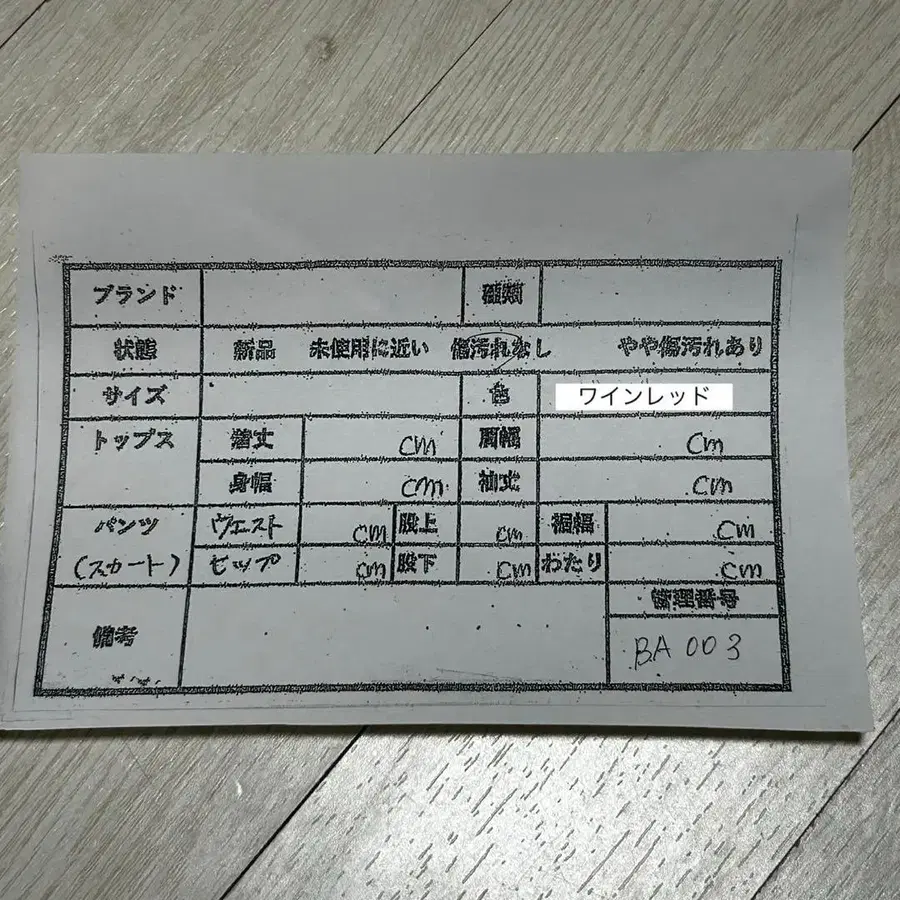 ブランド 種類
状態 新品 未使用に近い 傷汚れなし やや傷汚れあり
サイズ 色 ワインレッド
トップス 着丈 cm 肩幅 cm
身幅 cm 袖丈 cm
パンツ ウエスト cm 股上 cm 裾幅 cm
(スカート) ヒップ cm 股下 cm わたり cm
管理番号
備考 BA 003